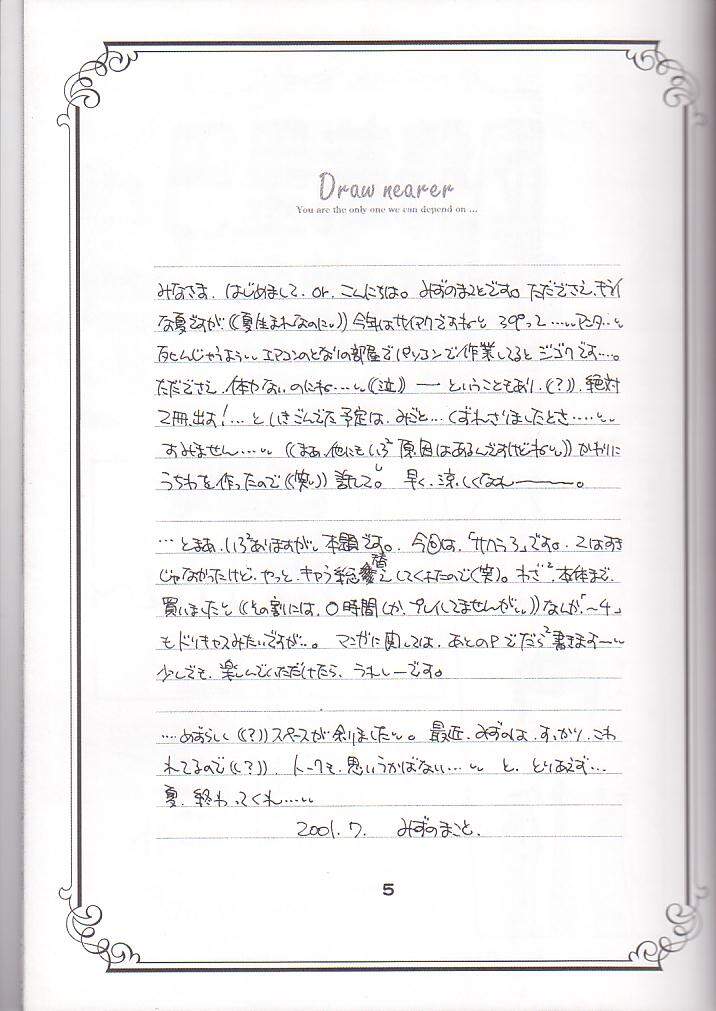 Draw nearer
You are the only one we can depend on ...
みなさま、はじめまして、or、こんにちは。みずのまことです。ただでさえ、キライ
な夏ですが((夏生まれなのに。))今年はサイアクですねえ 39°って…。アンタ…。
死んじゃうよう。エアコンのとなりの部屋でパソコンで作業してるとジゴクです…。
ただでさえ、体力ないのにね…。((泣)) ー ということもあり、(?)、絶対
2冊、出す!…といきごんでた予定は、みごと…くずれさりましたとさ…。
すみません…。((まあ、他にもいろ²原因はあるんですけどね。))かわりに
うちわを作ったので((笑))許して。 早く、涼しくなれーーー。
…とまあ、いろ²ありますが、本題です。今回は、「サクラ3」です。2はすき
じゃなかったけど、やっと、キャラ総替えしてくれたので(笑)。わざ²、本体まで、
買いましたと((その割には、〇時間しか、プレイしてませんが。))なんか「〜4」
もドリキャスみたいですが…。マンガに関しては、あとのPでだら²書きます〜
少しでも、楽しんでいただけたら、うれしーです。
…めずらしく((?))スペースが余りました。最近、みずのは、すっかり、こわ
れてるので((?))、トークも、思いうかばない…。と、とりあえず…
夏、終わってくれ…。
2001.7. みずのまこと.
5